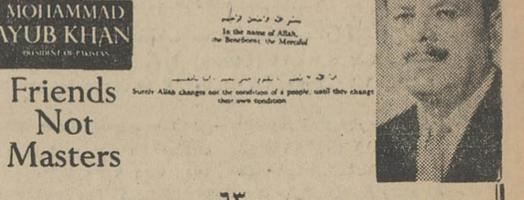 MOHAMMAD
AYUB KHAN
PRESIDENT OF PAKISTAN
Friends
Not
Masters
In the name of Allah,
the Beneficent, the Merciful
Surely Allah changes not the condition of a people, until they change
their own condition
٦٣